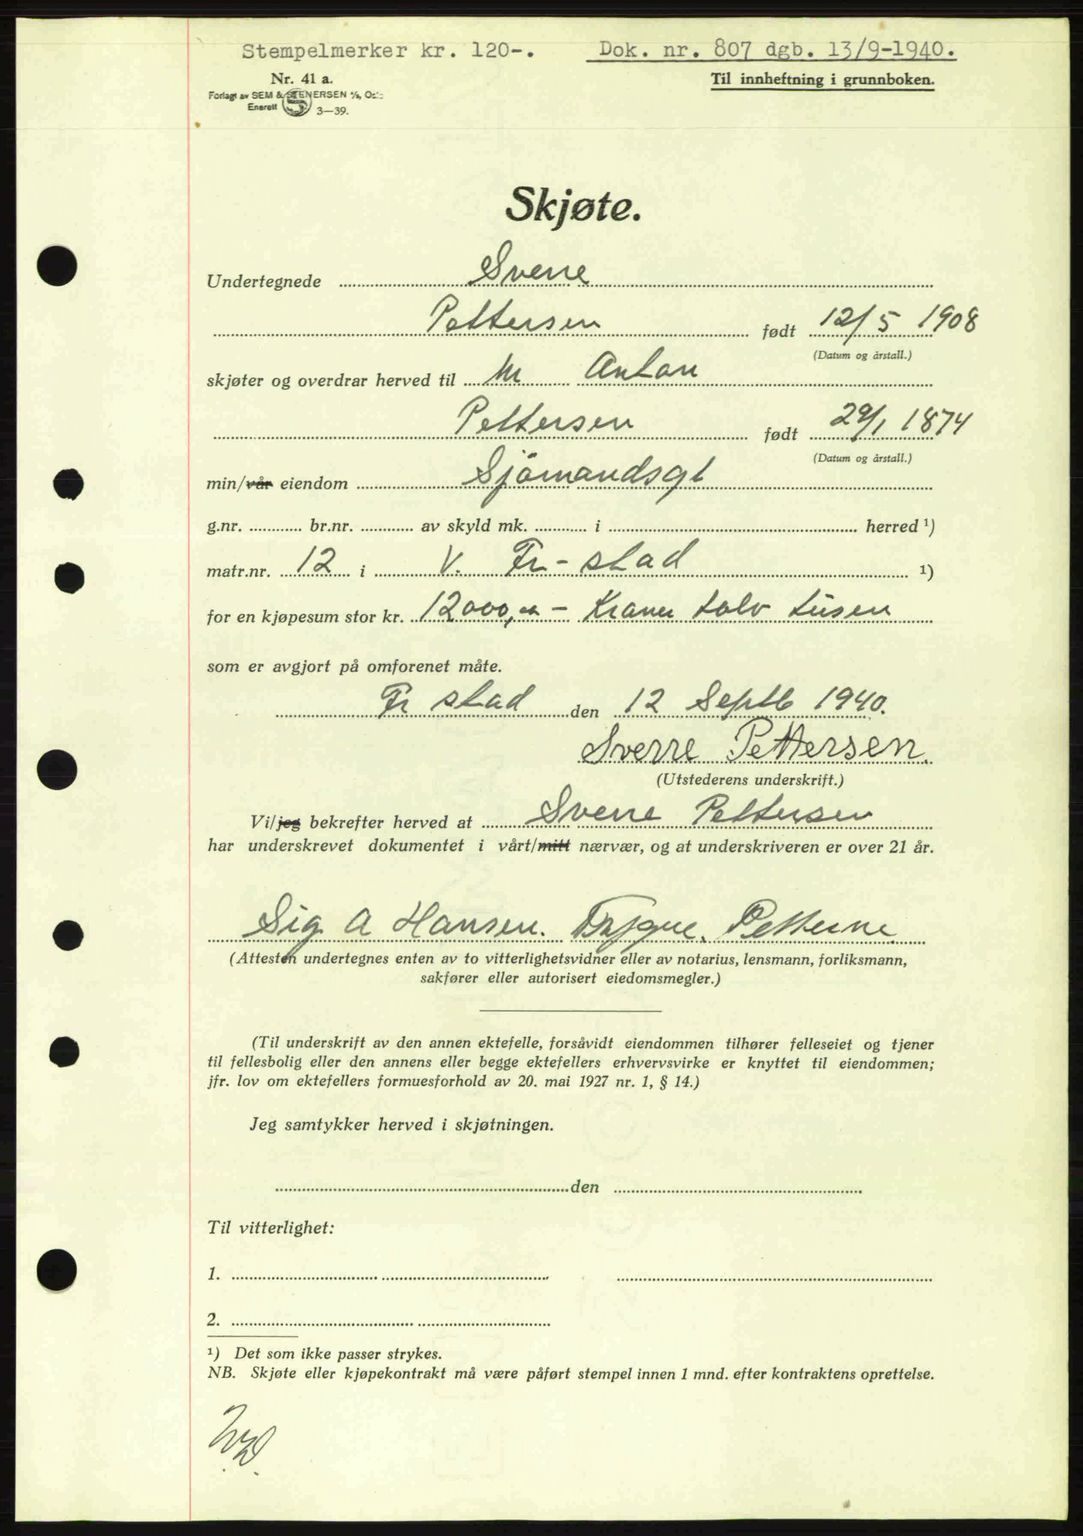 Stempelmerker kr. 120-. Dok. nr. 807 dgb. 13/9-1940.
Nr. 41 a. Til innheftning i grunnboken.
Forlagt av SEM & STENERSEN A/S, Oslo
Enerett S 3—39.
Skjøte.
Undertegnede Sverre
Pettersen født 12/5 1908
(Datum og årstall.)
skjøter og overdrar herved til M Anton
Pettersen født 29/1 1874
(Datum og årstall.)
min/vår eiendom Sjömandsgt
g.nr. br.nr. av skyld mk. i herred ¹)
matr.nr. 12 i V. Fr-stad ¹)
for en kjøpesum stor kr. 12000,oo - Kroner tolv tusen
som er avgjort på omforenet måte.
Fr stad den 12 Septb 1940.
Sverre Pettersen.
(Utstederens underskrift.)
Vi/jeg bekrefter herved at Sverre Pettersen
har underskrevet dokumentet i vårt/mitt nærvær, og at underskriveren er over 21 år.
Sig A Hansen.
(Attesten undertegnes enten av to vitterlighetsvidner eller av notarius, lensmann, forliksmann,
sakfører eller autorisert eiedomsmegler.)
(Til underskrift av den annen ektefelle, forsåvidt eiendommen tilhører felleseiet og tjener
til fellesbolig eller den annens eller begge ektefellers erhvervsvirke er knyttet til eiendommen;
jfr. lov om ektefellers formuesforhold av 20. mai 1927 nr. 1, § 14.)
Jeg samtykker herved i skjøtningen.
den
Til vitterlighet:
1.
2.
¹) Det som ikke passer strykes.
NB. Skjøte eller kjøpekontrakt må være påført stempel innen 1 mnd. efter kontraktens oprettelse.